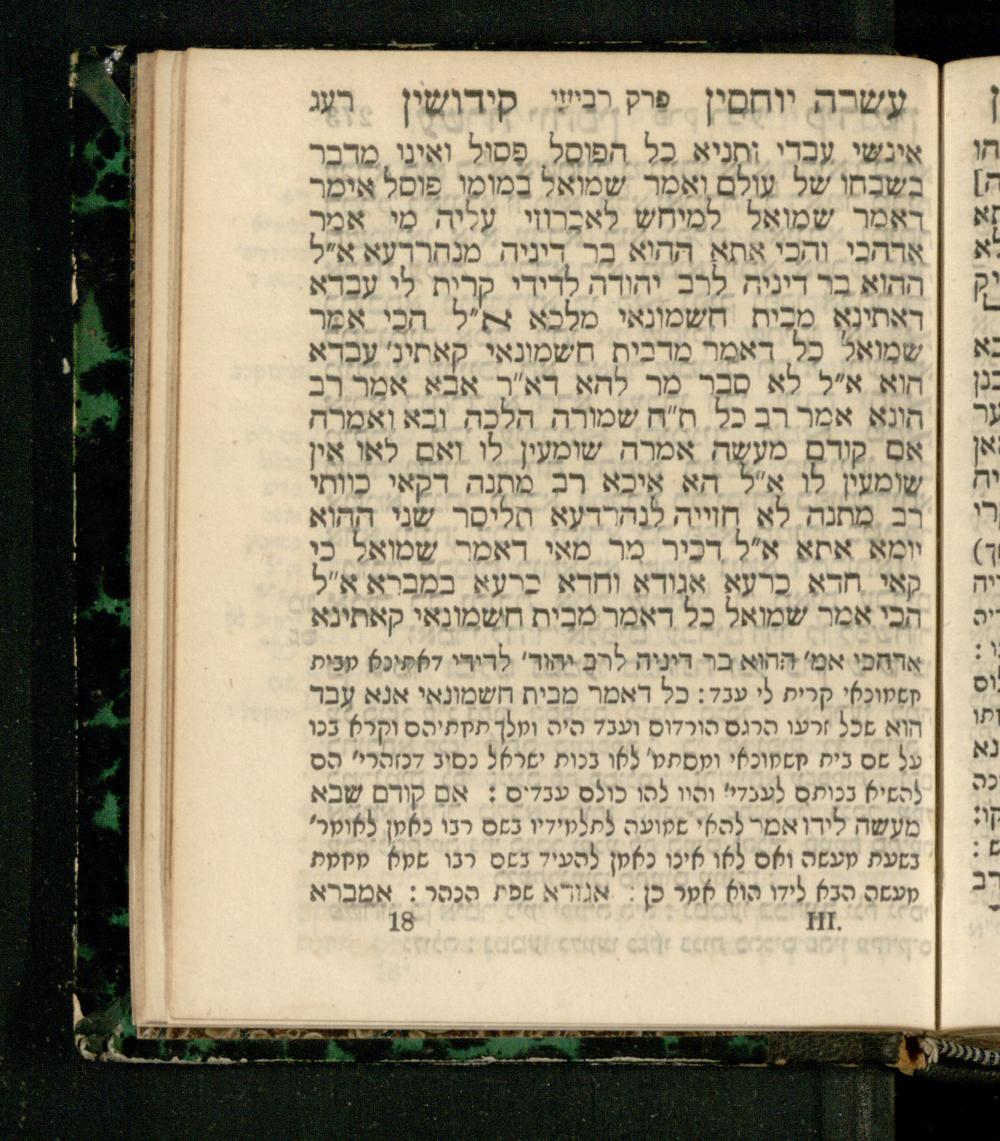 עשרה יוחסין פרק רביעי קידושין רעג
אינשי עבדי ותניא כל הפוסל פסול ואינו מדבר
בשבחו של עולם ואמר שמואל במומו פוסל אימר
דאמר שמואל למיחש לאכרוזי עליה מי אמר
אדהכי והכי אתא ההוא בר דיניה מנהרדעא א״ל
ההוא בר דיניה לרב יהודה לדידי קרית לי עבדא
דאתינא מבית חשמונאי מלכא א״ל הכי אמר
שמואל כל דאמר מדבית חשמונאי קאתינ׳ עבדא
הוא א״ל לא סבר מר להא דא״ר אבא אמר רב
הונא אמר רב כל ת״ח שמורה הלכה ובא ואמרה
אם קודם מעשה אמרה שומעין לו ואם לאו אין
שומעין לו א״ל הא איכא רב מתנה דקאי כוותי
רב מתנה לא חזייה לנהרדעא תליסר שני ההוא
יומא אתא א״ל דכיר מר מאי דאמר שמואל כי
קאי חדא כרעא אגודא וחדא כרעא במברא א״ל
הכי אמר שמואל כל דאמר מבית חשמונאי קאתינא
אדהכי אמ׳ ההוא בר דיניה לרב יהוד׳ לדידי דאתינא מבית
חשמונאי קרית לי עבד : כל דאמר מבית חשמונאי אנא עבד
הוא שכל זרעו הרגם הורדוס ועבד היה ומלך תחתיהם וקרא בנו
על שם בית חשמונאי ומסתמ׳ לאו בנות ישראל נסיב דנזהרי׳ הם
להשיא בנותם לעבדי׳ והוו להו כולם עבדים : אם קודם שבא
מעשה לידו אמר להאי שמועה לתלמידיו בשם רבו נאמן לאומר׳
בשעת מעשה ואם לאו אינו נאמן להעיד בשם רבו שמא מחמת
מעשה הבא לידו הוא אמר כן : אגודא שפת הנהר : אמברא
III. 18